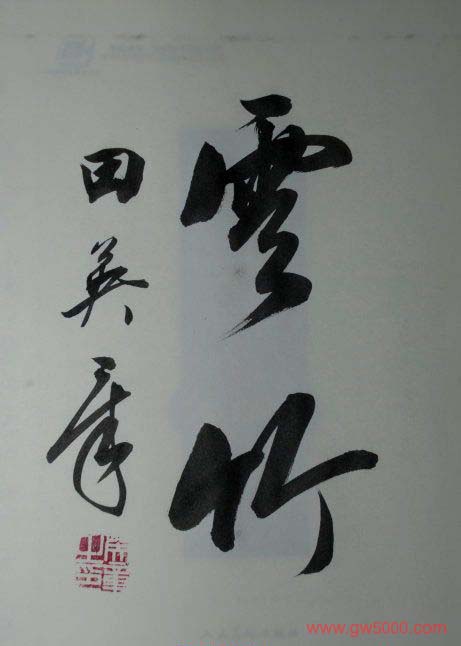 雲竹
田英章
www.gw5000.com